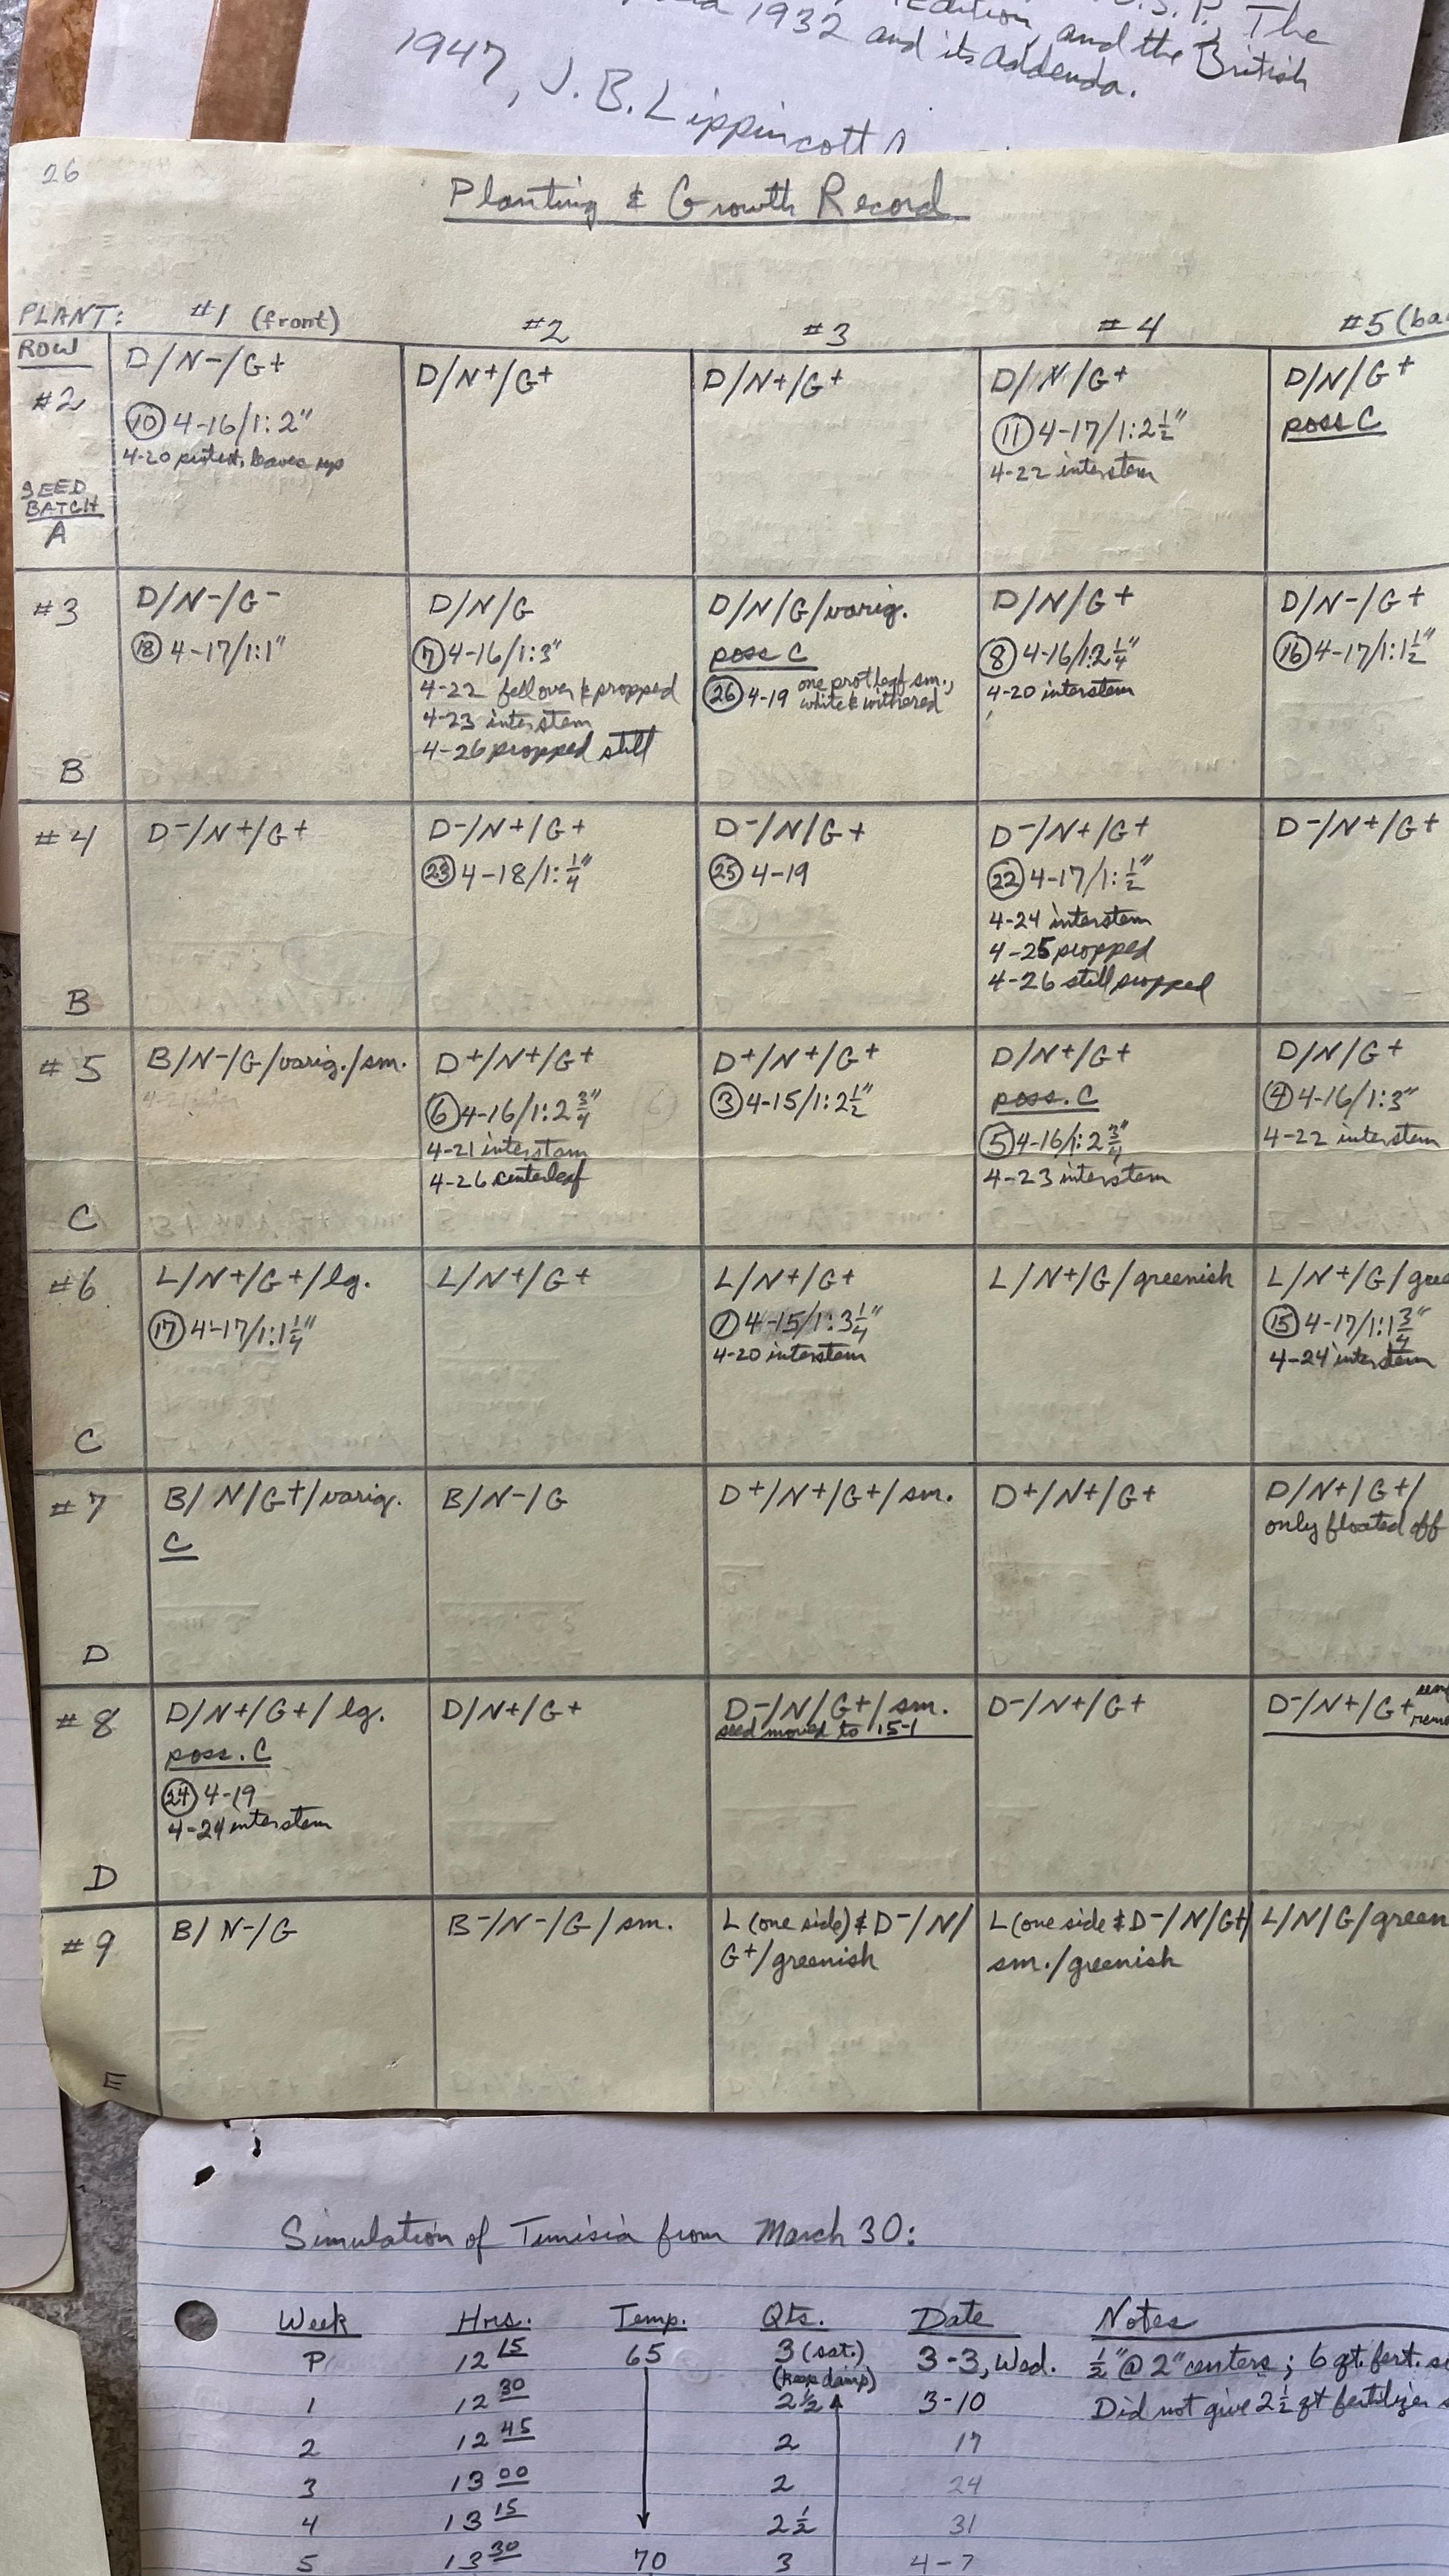 Edition, and the British
1932 and its addenda.
1947, J. B. Lippincott
26
Planting & Growth Record
PLANT: #1 (front) #2 #3 #4 #5
ROW
#2
SEED
BATCH
A
D/N-/G+
⑩ 4-16/1: 2"
4-20 leaves up
D/N+/G+
D/N+/G+
D/N/G+
⑪ 4-17/1: 2½"
4-22 interstem
D/N/G+
poss C
#3
B
D/N-/G-
⑱ 4-17/1: 1"
D/N/G
⑦ 4-16/1: 3"
4-22 fell over & propped
4-23 interstem
4-26 propped still
D/N/G/varig.
poss C
㉖ 4-19 one prot leaf sm.,
white & withered
D/N/G+
⑧ 4-16/1: 2¼"
4-20 interstem
D/N-/G+
⑯ 4-17/1: 1½"
#4
B
D-/N+/G+
D-/N+/G+
㉓ 4-18/1: ¼"
D-/N/G+
㉕ 4-19
D-/N+/G+
㉒ 4-17/1: ½"
4-24 interstem
4-25 propped
4-26 still propped
D-/N+/G+
#5
C
B/N-/G/varig./sm.
D+/N+/G+
⑥ 4-16/1: 2¾"
4-21 interstem
4-26 centerleaf
D+/N+/G+
③ 4-15/1: 2½"
D/N+/G+
poss. C
⑤ 4-16/1: 2¾"
4-23 interstem
D/N/G+
④ 4-16/1: 3"
4-22 interstem
#6
C
L/N+/G+/lg.
⑰ 4-17/1: 1¼"
L/N+/G+
L/N+/G+
① 4-15/1: 3¼"
4-20 interstem
L/N+/G/greenish
L/N+/G/
⑮ 4-17/1: 1¾"
4-24 interstem
#7
D
B/N/G+/varig.
C
B/N-/G
D+/N+/G+/sm.
D+/N+/G+
D/N+/G+/
only floated off
#8
D
D/N+/G+/lg.
poss. C
㉔ 4-19
4-24 interstem
D/N+/G+
D-/N/G+/sm.
seed moved to 15-1
D-/N+/G+
D-/N+/G+
#9
E
B/N-/G
B-/N-/G/sm.
L (one side) & D-/N/
G+/greenish
L (one side & D-/N/G+/
sm./greenish
L/N/G/green
Simulation of Tunisia from March 30:
Week Hrs. Temp. Qts. Date Notes
P 12 15 65 3 (sat.) 3-3, Wed. ½" @ 2" centers; 6 qt. fert.
(keep damp)
1 12 30 2½ 3-10 Did not give 2½ qt fertilizer
2 12 45 2 17
3 13 00 2 24
4 13 15 2½ 31
5 13 30 70 3 4-7